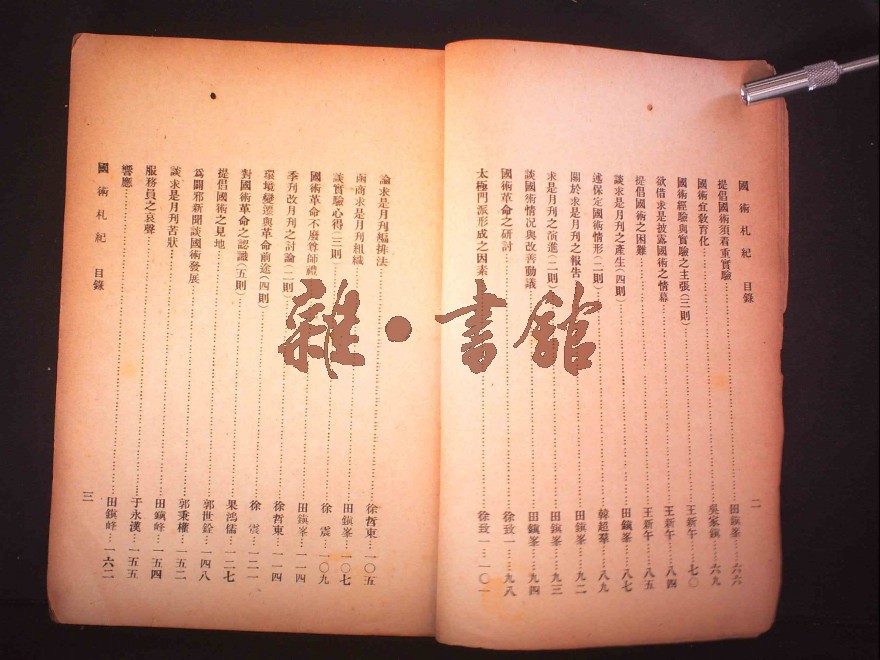 國術札紀 目錄
二
提倡國術須着重實驗……田鎮峯…六六
國術宜敎育化……吳家鎮…六九
國術經驗與實驗之主張(二則)……王新午…七〇
欲借求是披露國術之情幕……王新午…八四
提倡國術之困難……王新午…八五
談求是月刊之產生(四則)……田鎮峯…八七
述保定國術情形(二則)……韓超羣…八九
關於求是月刊之報告……田鎮峯…九二
求是月刊之演進(二則)……田鎮峯…九三
談國術情況與改善動議……田鎮峯…九四
國術革命之研討……徐致一…九八
太極門派形成之因素……徐致一…一〇一
論求是月刊編排法……徐哲東…一〇五
函商求是月刊組織……田鎮峯…一〇七
談實驗心得(三則)……徐 震…一〇九
國術革命不廢尊師禮……田鎮峯…一一四
季刊改月刊之討論(二則)……徐哲東…一一四
環境變遷與革命前途(四則)……徐 震…一二一
對國術革命之認識(五則)……果鴻儒…一二七
提倡國術之見地……郭世銓…一四八
爲闢邪新聞談國術發展……郭秉權…一五二
談求是月刊苦狀……田鎮峰…一五四
服務員之哀聲……于永漢…一五五
響應……田鎮峰…一六二
國術札紀 目錄
三
雜·書舘